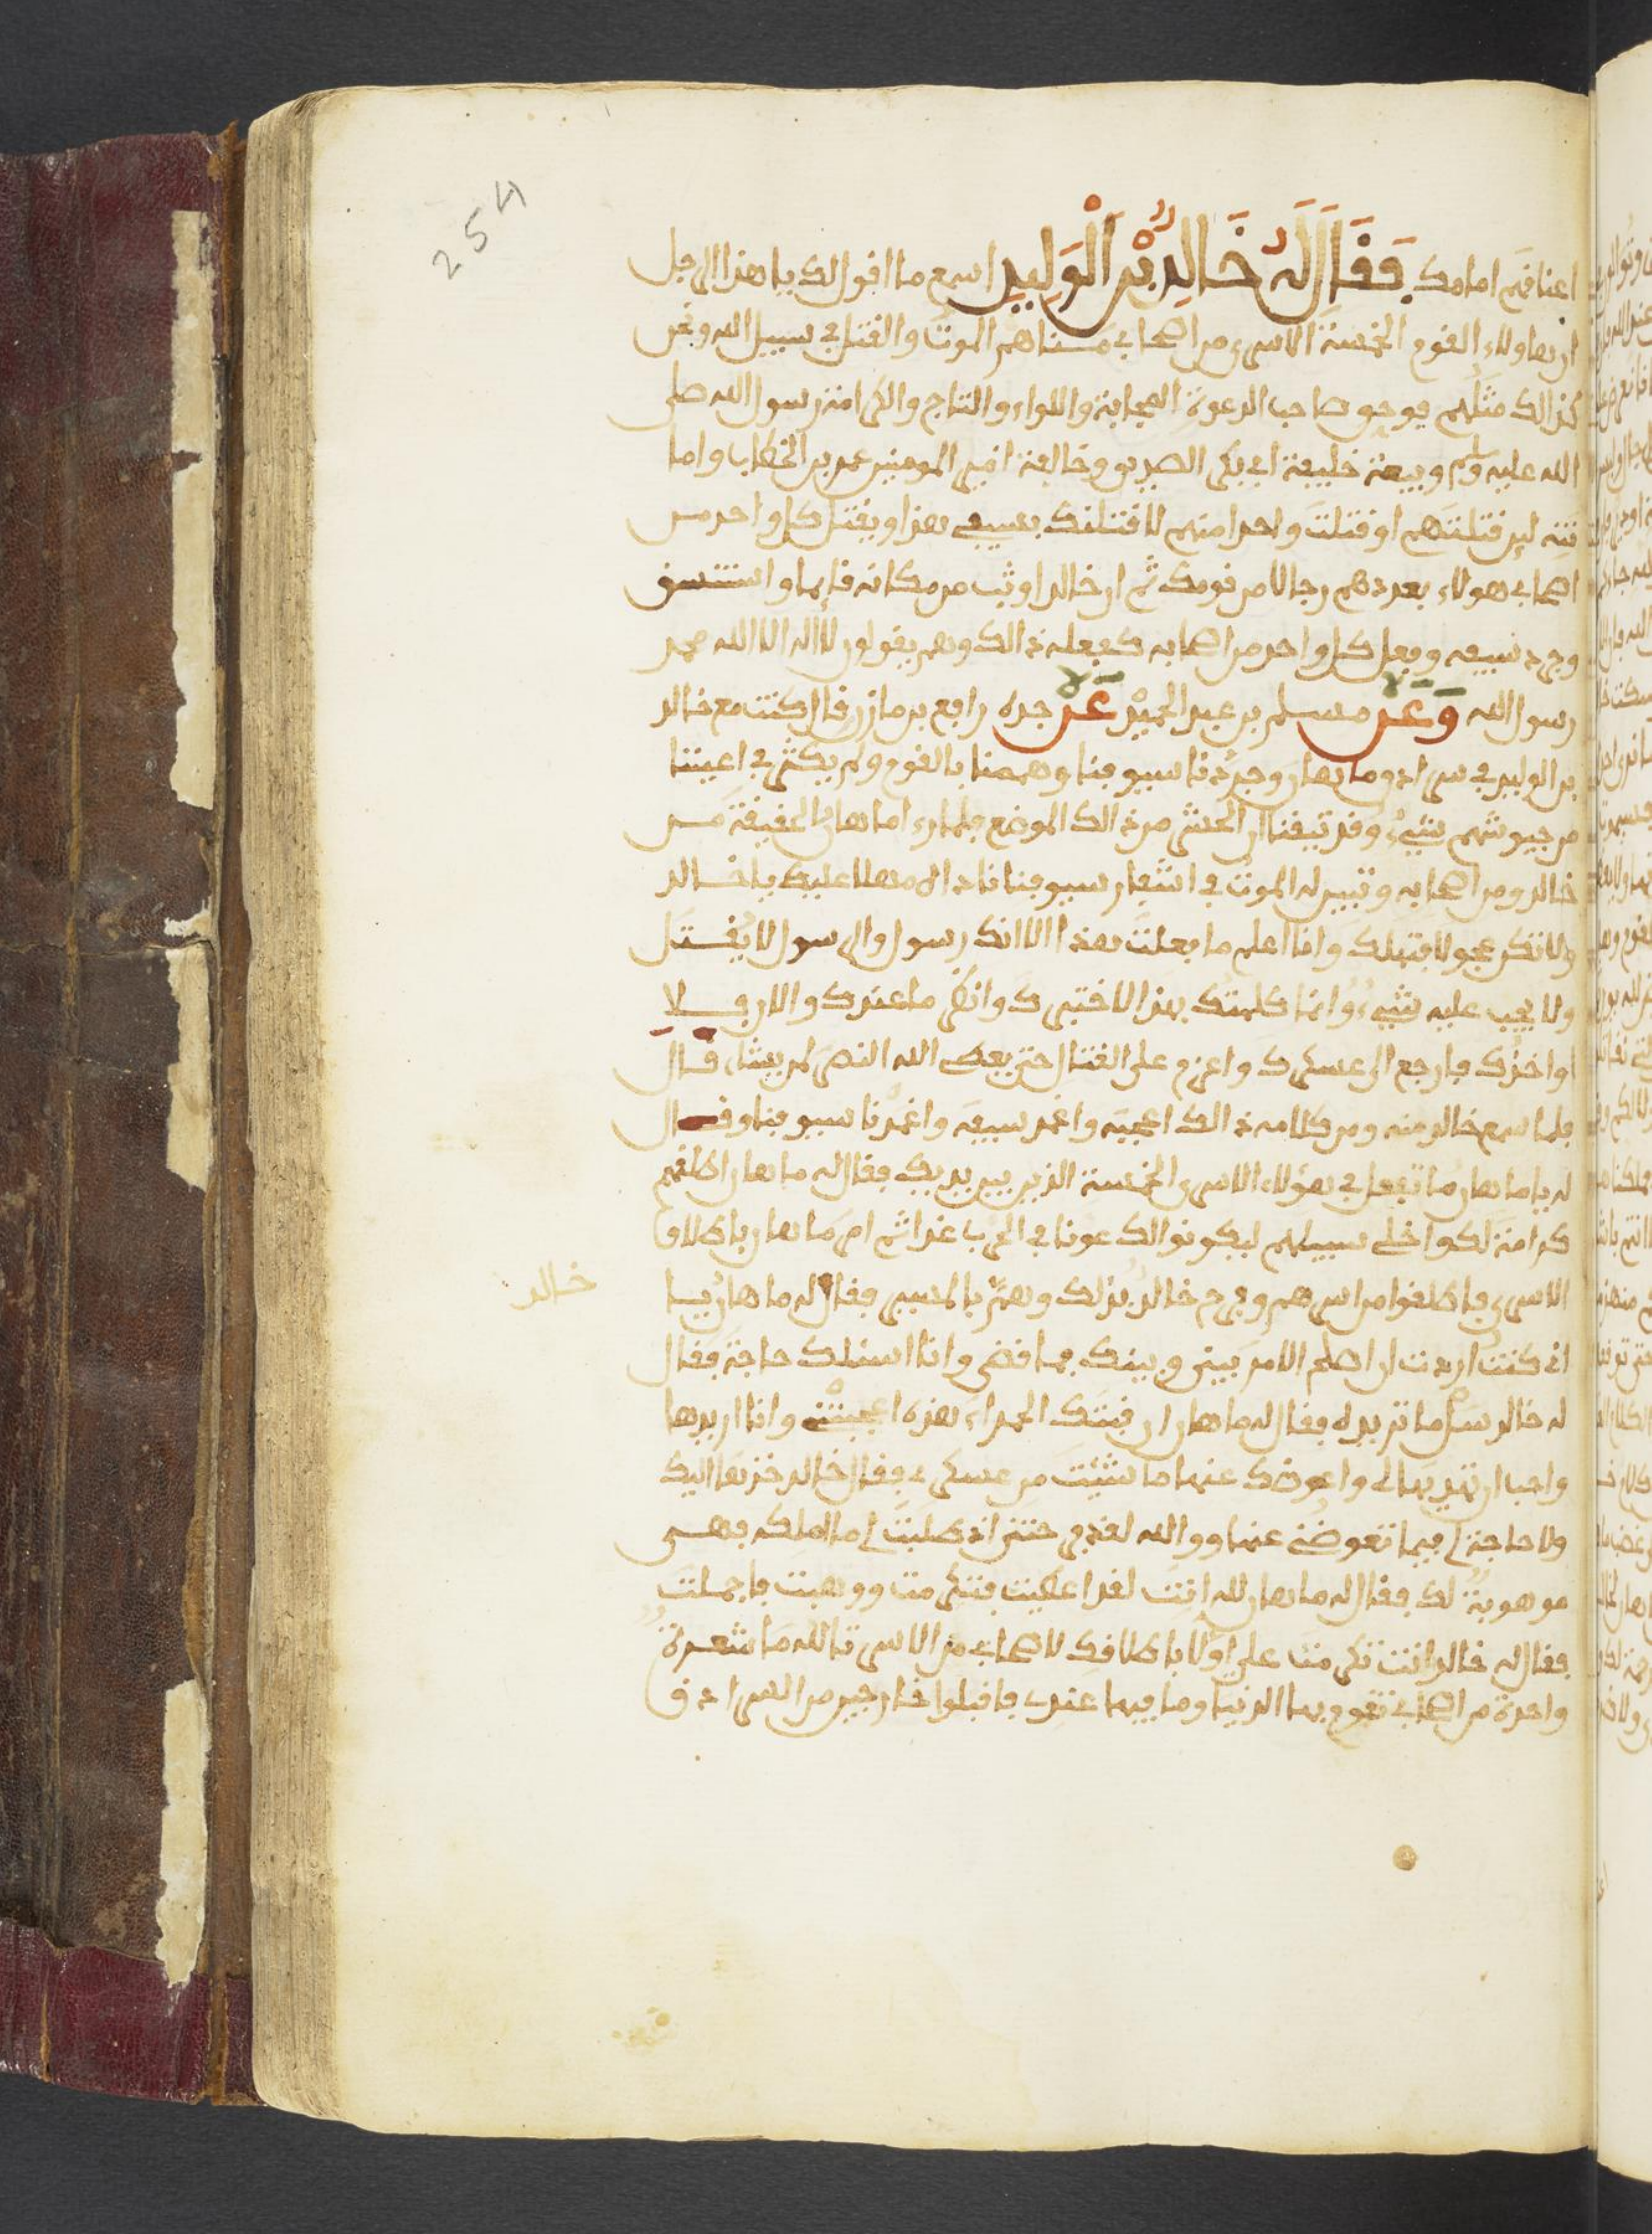 254
اعناقهم امامك فقال له خالد بن الوليد اسمع ما اقول لك يا هذا الرجل
ان هاولاء القوم الخمسة الاسرى من اصحابي مناهم الموت والقتل في سبيل الله ونحن
كذالك مثلهم فوحق صاحب الدعوة المجابة واللواء والتاج والكرامة رسول الله صلى
الله عليه وسلم وبيعة خليفة ابي بكر الصديق وخالفة امير المومنين عمر بن الخطاب واما
لين قتلتهم او قتلت واحدا منهم لاقتلنك بسيفي هذا ويقتل كل واحد من
اصحابي هولاء بعددهم رجالا من قومك ثم ان خالدا وثب من مكانه قايما
وجرد سيفه وفعل كل واحد من اصحابه كفعله ذالك وهم يقولون لا اله الا الله محمد
رسول الله وعن مسلم بن عبد الحميد عن جده رافع بن مازن قال كنت مع خالد
بن الوليد في سرادق ماهان وجردنا سيوفنا وهممنا بالقوم ولم يكثر في اعيننا
من جيوشهم شيء وقد تيقنا ان الحشر من ذالك الموضع فلما رءا ماهان الحقيقة من
خالد ومن اصحابه وتبين له الموت في اشفار سيوفنا نادا مهلا عليك يا خالد
ولا تكن عجولا فتهلك وانا اعلم ما فعلت هذا الا انك رسول والرسول لا يقتل
ولا يجب عليه شيء وانما كلمتك بهذا لاختبرك وانظر ما عندك والان فلا
اواخذك فارجع الى عسكرك واعزم على القتال حتى يعط الله النصر لمن يشاء قال
فلما سمع خالد منه ومن كلامه ذالك اعجبه واغمد سيفه واغمدنا سيوفنا وقال
له يا ماهان ما تفعل في هؤلاء الاسرى الخمسة الذين بين يديك فقال له ماهان اطلقهم
كرامة لك واخلي سبيلهم ليكونوا لك عونا في الحرب غدا ثم امر ماهان باطلاق
الاسرى فاطلقوا من اسرهم وفرح خالد بذلك وهم بالمسير فقال له ماهان يا
خالد
اني كنت اردت ان اصلح الامر بيني وبينك فما قضى وانا اسئلك حاجة فقال
له خالد سل ما تريده فقال له ماهان ان قبتك الحمراء هذه اعجبتني وانا اريدها
واحب ان تهديها لي واعوضك عنها ما شئت من عسكري فقال خالد خذها اليك
ولا حاجة لي فيما تعوضني عنها ووالله لفرحتني اذ طلبت لي ما املكه فهي
موهوبة لك فقال له ماهان لله انت لقد اعطيت فتكرمت ووهبت فاجملت
فقال له خالد انت تكرمت علي اولا باطلاقك لاصحابي من الاسر تالله ما شعرة
واحدة من اصحابي تقوم بها الدنيا وما فيها عندي فاقبلوا خارجين من السرادق